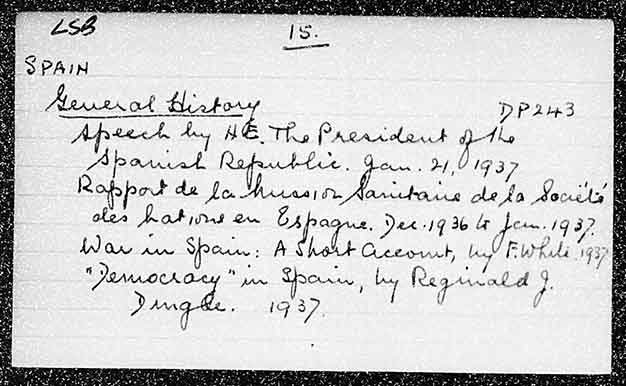 LSB
15.
SPAIN
General History
DP243
Speech by H.E. The President of the
Spanish Republic. Jan. 21, 1937
Rapport de la Mission Sanitaire de la Société
des Nations en Espagne. Dec. 1936 to Jan. 1937.
War in Spain: A Short Account, by F. White. 1937
"Democracy" in Spain, by Reginald J.
Dingle. 1937.